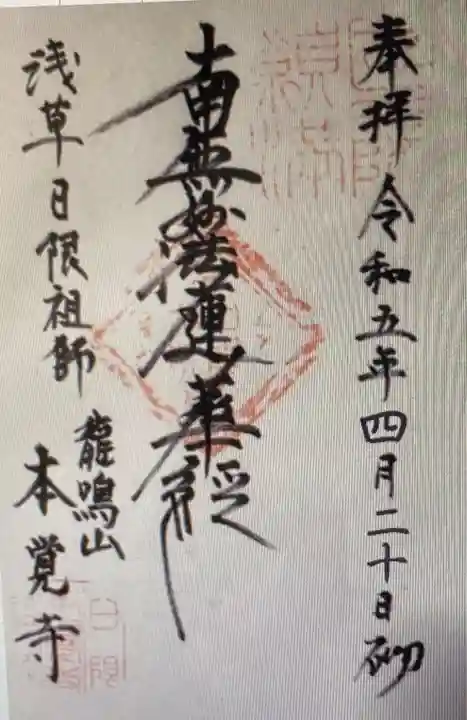 奉拝 令和五年四月二十日砌
南無妙法蓮華経
浅草日限祖師
龍鳴山
本覚寺
日限